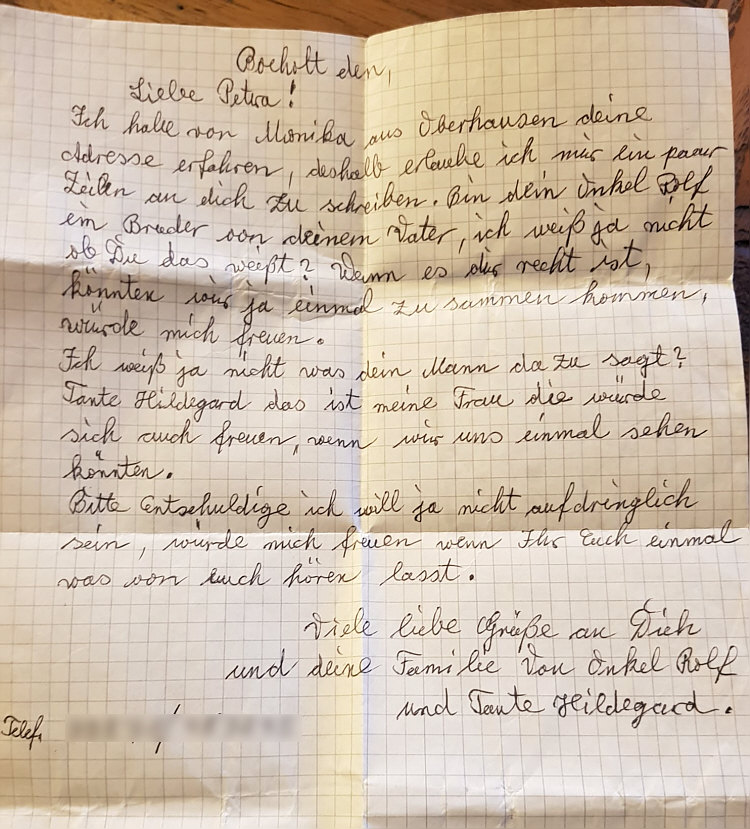 Bocholt den,
Liebe Petra!
Ich habe von Monika aus Oberhausen deine
Adresse erfahren, deshalb erlaube ich mir ein paar
Zeilen an dich zu schreiben. Bin dein Onkel Rolf
ein Bruder von deinem Vater, ich weiß ja nicht
ob Du das weißt? Wenn es dir recht ist,
könnten wir ja einmal zu sammen kommen,
würde mich freuen.
Ich weiß ja nicht was dein Mann da zu sagt?
Tante Hildegard das ist meine Frau die würde
sich auch freuen, wenn wir uns einmal sehen
könnten.
Bitte Entschuldige ich will ja nicht aufdringlich
sein, würde mich freuen wenn Ihr Euch einmal
was von euch hören lasst.
Viele liebe Grüße an Dich
und deine Familie Von Onkel Rolf
und Tante Hildegard.
Telef. /